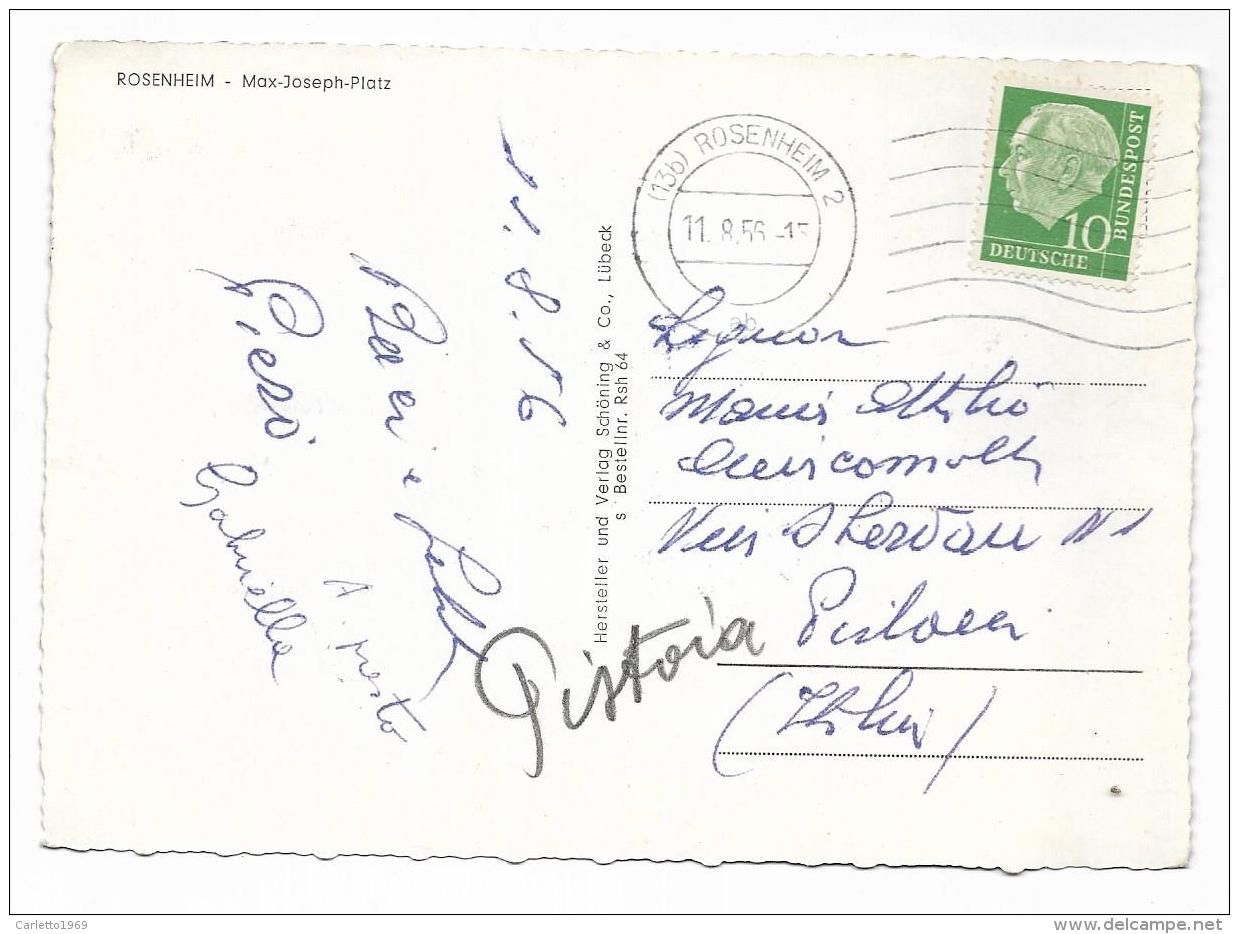 ROSENHEIM - Max-Joseph-Platz
(13b) ROSENHEIM 2
11. 8.56 -15
ab
10
DEUTSCHE
BUNDESPOST
11.8.56
Piero
A presto
Gabriella
Hersteller und Verlag Schöning & Co., Lübeck
s Bestellnr. Rsh 64
Signor
Attilio
Via
Pistoia
(Italia)
Pistoia
Carletto1969
www.delcampe.net